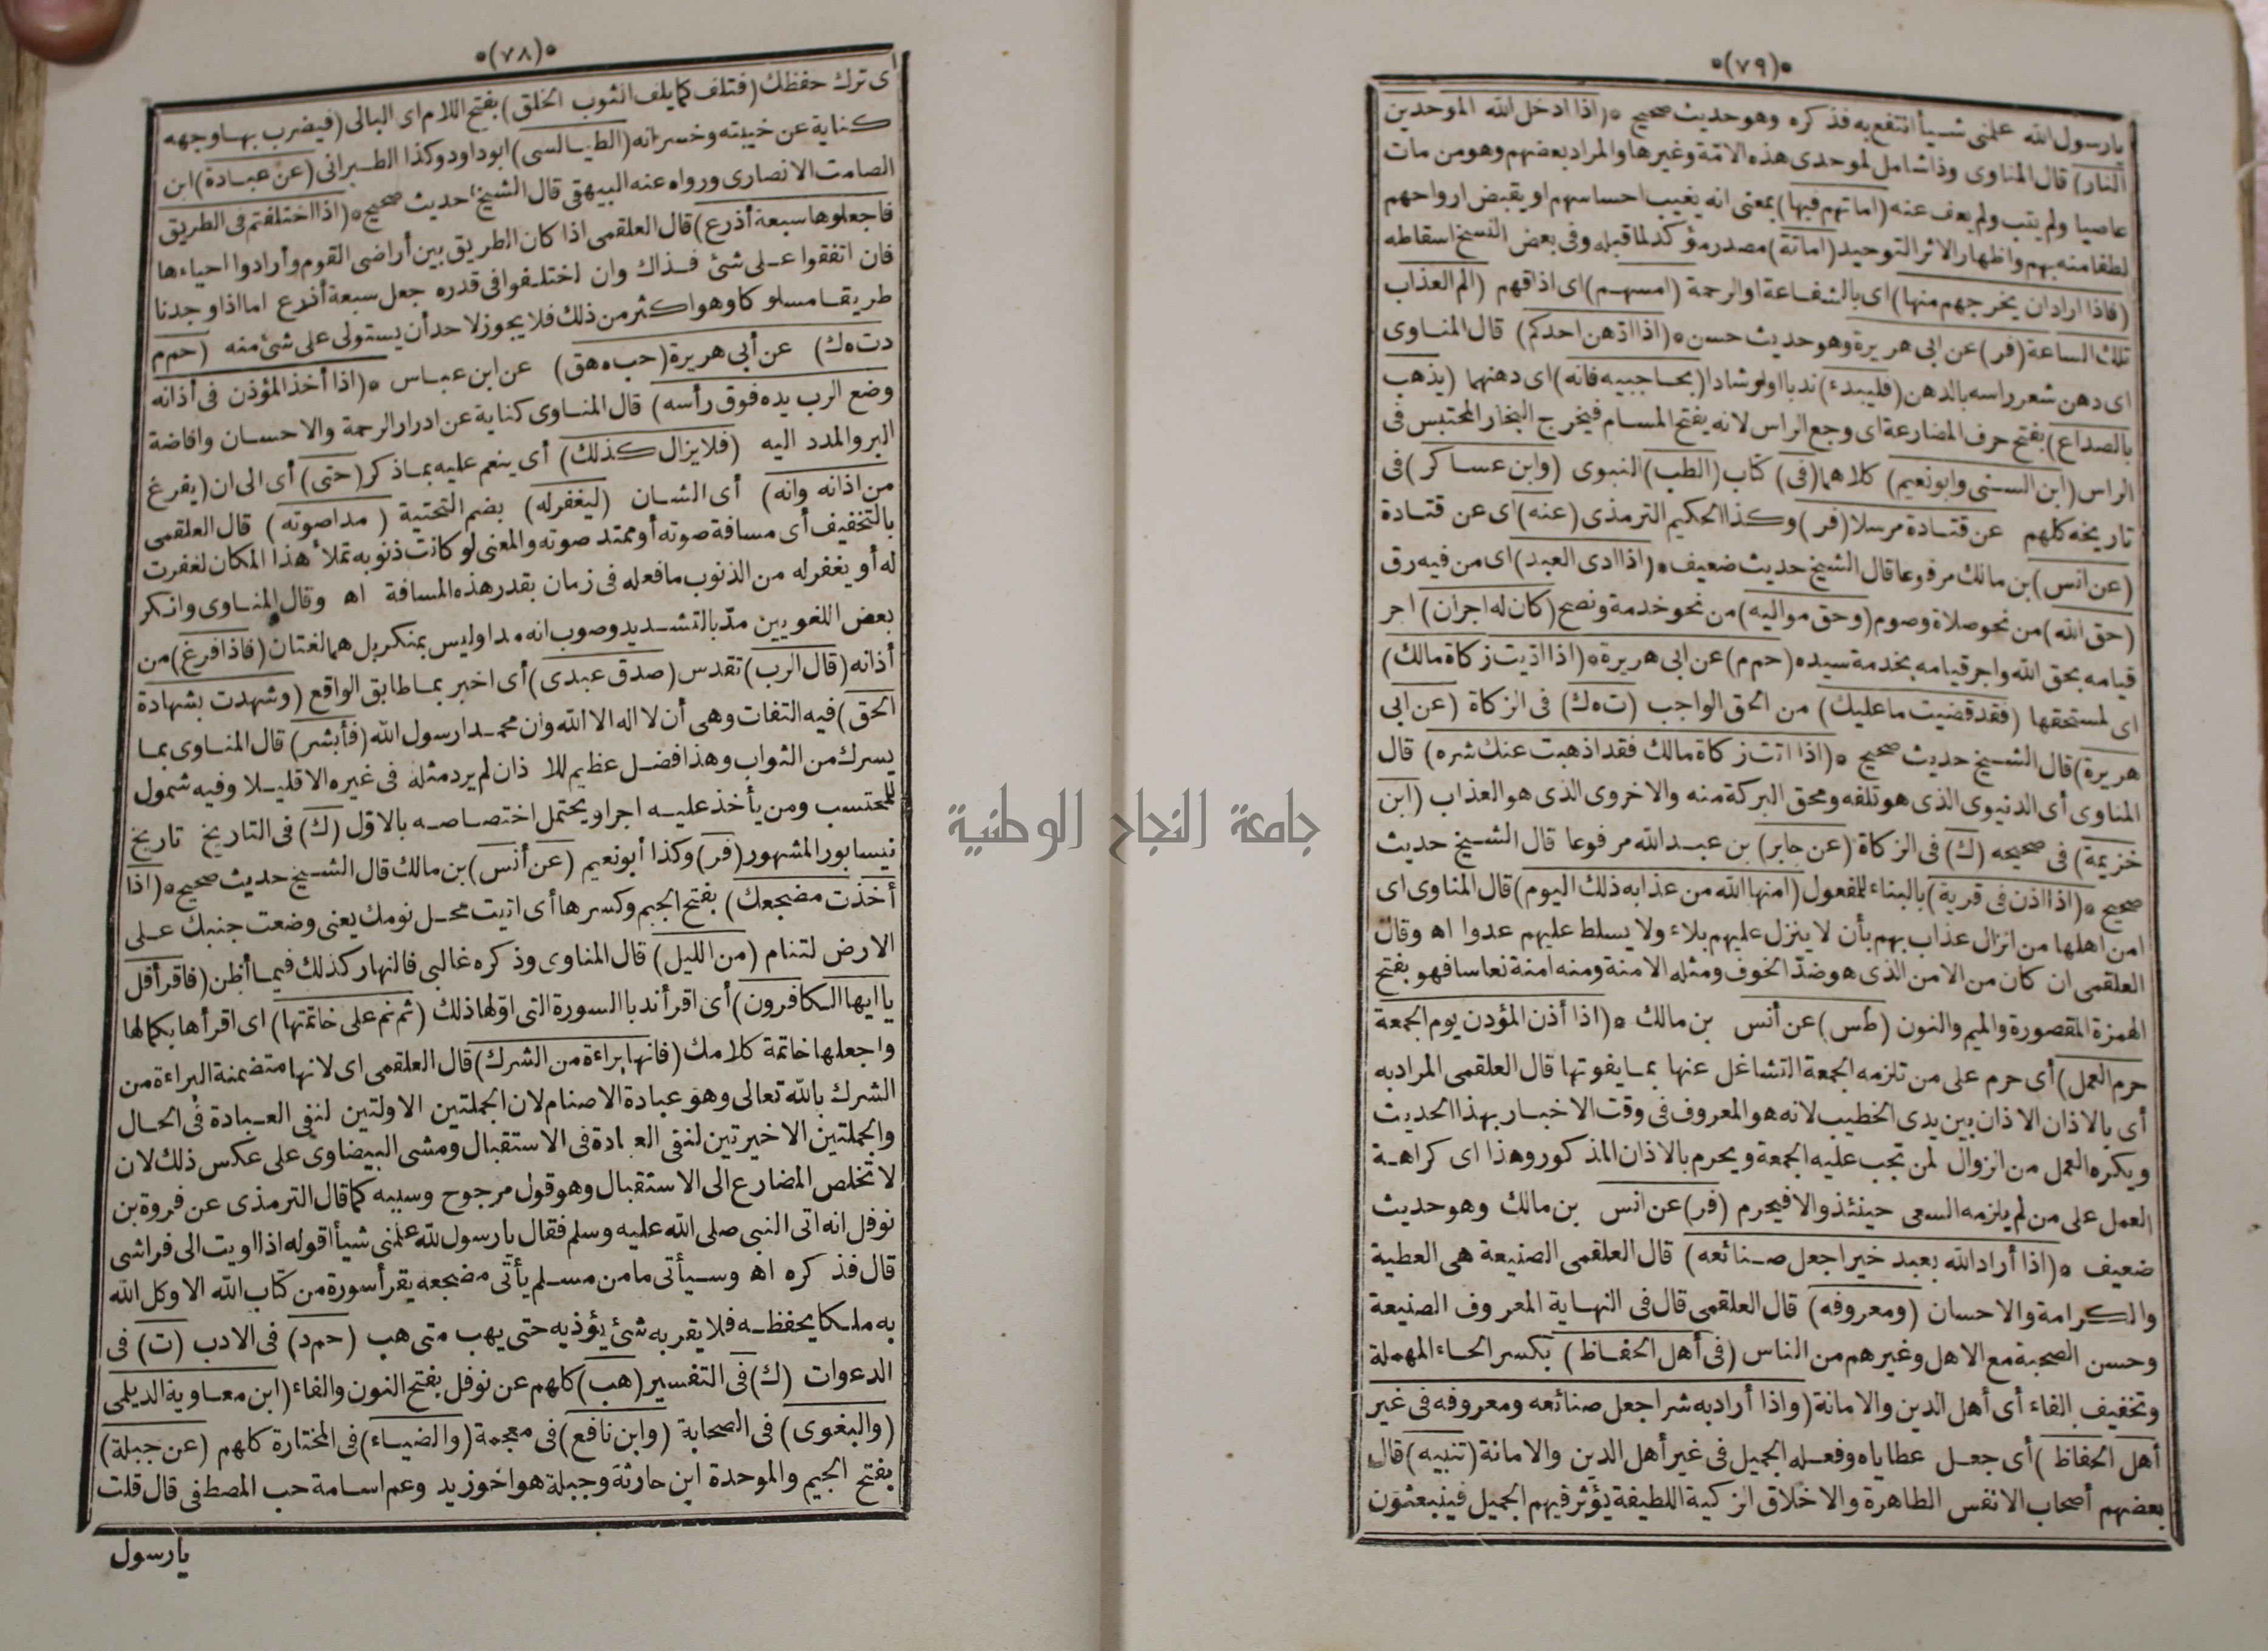 •(٧٨)•
اى ترك حفظك (فتلف كما يلف الثوب الخلق) بفتح اللام اى البالى (فيضرب بها وجهه
كناية عن خيبته وخسرانه (الطيالسى) ابو داود وكذا الطبرانى (عن عبادة) ابن
الصامت الانصارى ورواه عنه البيهقى قال الشيخ حديث صحيح • (اذا اختلفتم فى الطريق
فاجعلوها سبعة أذرع) قال العلقمى اذا كان الطريق بين أراضى القوم وأرادوا احياءها
فان اتفقوا على شئ فذاك وان اختلفوا فى قدره جعل سبعة أذرع اما اذا وجدنا
طريقا مسلوكا وهو اكثر من ذلك فلا يجوز لاحد أن يستولى على شئ منه (حم م
د ت ه ك) عن أبى هريرة (حب ه هق) عن ابن عباس • (اذا أخذ المؤذن فى أذانه
وضع الرب يده فوق رأسه) قال المناوى كناية عن ادرار الرحمة والاحسان وافاضة
البر والمدد اليه (فلا يزال كذلك) أى ينعم عليه بما ذكر (حتى) أى الى ان (يفرغ
من اذانه وانه) أى الشان (ليغفر له) بضم التحتية (مدا صوته) قال العلقمى
بالتخفيف أى مسافة صوته أو ممتد صوته والمعنى لو كانت ذنوبه تملأ هذا المكان لغفرت
له أو يغفر له من الذنوب ما فعله فى زمان بقدر هذه المسافة اه وقال المناوى وانكر
بعض اللغويين مدّ بالتشديد وصوب انه مدا وليس بمنكر بل هما لغتان (فاذا فرغ) من
أذانه (قال الرب) تقدس (صدق عبدى) أى اخبر بما طابق الواقع (وشهدت بشهادة
الحق) فيه التفات وهى أن لا اله الا الله وان محمدا رسول الله (فأبشر) قال المناوى بما
يسرك من الثواب وهذا فضل عظيم للاذان لم يرد مثله فى غيره الا قليلا وفيه شمول
للمحتسب ومن يأخذ عليه اجرا ويحتمل اختصاصه بالاوّل (ك) فى التاريخ تاريخ
نيسابور المشهور (فر) وكذا أبو نعيم (عن أنس) بن مالك قال الشيخ حديث صحيح • (اذا
أخذت مضجعك) بفتح الجيم وكسرها أى اتيت محل نومك يعنى وضعت جنبك على
الارض لتنام (من الليل) قال المناوى وذكره غالبى فالنهار كذلك فيما أظن (فاقرأ قل
يا ايها الكافرون) أى اقرأ ندبا السورة التى اوّلها ذلك (ثم نم على خاتمتها) اى اقرأها بكمالها
واجعلها خاتمة كلامك (فانها براءة من الشرك) قال العلقمى اى لانها متضمنة البراءة من
الشرك بالله تعالى وهو عبادة الاصنام لان الجملتين الاولتين لنفى العبادة فى الحال
والجملتين الاخيرتين لنفى العبادة فى الاستقبال ومشى البيضاوى على عكس ذلك لان
لا تخلص المضارع الى الاستقبال وهو قول مرجوح وسببه كما قال الترمذى عن فروة بن
نوفل انه اتى النبى صلى الله عليه وسلم فقال يا رسول الله علمنى شيأ اقوله اذا اويت الى فراشى
قال فذكره اه وسيأتى ما من مسلم يأتى مضجعه يقرأ سورة من كتاب الله الا وكل الله
به ملكا يحفظه فلا يقربه شئ يؤذيه حتى يهب متى هب (حم د) فى الادب (ت) فى
الدعوات (ك) فى التفسير (هب) كلهم عن نوفل بفتح النون والفاء (ابن معاوية الديلمى
(والبغوى) فى الصحابة (وابن نافع) فى معجمه (والضياء) فى المختارة كلهم (عن جبلة)
بفتح الجيم والموحدة ابن حارثة وجبلة هو اخو زيد وعم اسامة حب المصطفى قال قلت
يا رسول
•(٧٩)•
يا رسول الله علمنى شيأ انتفع به فذكره وهو حديث صحيح • (اذا ادخل الله الموحدين
النار) قال المناوى وذا شامل لموحدى هذه الامّة وغيرها والمراد بعضهم وهو من مات
عاصيا ولم يتب ولم يعف عنه (اماتهم فيها) بمعنى انه يغيب احساسهم او يقبض ارواحهم
لطفا منه بهم واظهارا لاثر التوحيد (اماتة) مصدر مؤكد لما قبله وفى بعض النسخ اسقاطه
(فاذا اراد ان يخرجهم منها) اى بالشفاعة او الرحمة (امسهم) اى اذاقهم (الم العذاب
تلك الساعة (فر) عن ابى هريرة وهو حديث حسن • (اذا ادّهن احدكم) قال المناوى
اى دهن شعر راسه بالدهن (فليبدء) ندبا او ارشادا (بحاجبيه فانه) اى دهنهما (يذهب
بالصداع) بفتح حرف المضارعة اى وجع الراس لانه يفتح المسام فيخرج البخار المحتبس فى
الراس (ابن السنى وابو نعيم) كلاهما (فى) كتاب (الطب) النبوى (وابن عساكر) فى
تاريخه كلهم عن قتادة مرسلا (فر) وكذا الحكيم الترمذى (عنه) اى عن قتادة
(عن انس) بن مالك مرفوعا قال الشيخ حديث ضعيف • (اذا ادى العبد) اى من فيه رق
(حق الله) من نحو صلاة وصوم (وحق مواليه) من نحو خدمة ونصح (كان له اجران) اجر
قيامه بحق الله واجر قيامه بخدمة سيده (حم م) عن ابى هريرة • (اذا اديت زكاة مالك)
اى لمستحقها (فقد قضيت ما عليك) من الحق الواجب (ت ه ك) فى الزكاة (عن ابى
هريرة) قال الشيخ حديث صحيح • (اذا اديت زكاة مالك فقد اذهبت عنك شره) قال
المناوى أى الدنيوى الذى هو تلفه ومحق البركة منه والاخروى الذى هو العذاب (ابن
خزيمة) فى صحيحه (ك) فى الزكاة (عن جابر) بن عبد الله مرفوعا قال الشيخ حديث
صحيح • (اذا اذن فى قرية) بالبناء للمفعول (امنها الله من عذابه ذلك اليوم) قال المناوى اى
امن اهلها من انزال عذاب بهم بأن لا ينزل عليهم بلاء ولا يسلط عليهم عدوا اه وقال
العلقمى ان كان من الامن الذى هو ضدّ الخوف ومثله الامنة ومنه امنة نعاسا فهو بفتح
الهمزة المقصورة والميم والنون (طس) عن أنس بن مالك • (اذا أذن المؤذن يوم الجمعة
حرم العمل) أى حرم على من تلزمه الجمعة التشاغل عنها بما يفوتها قال العلقمى المراد به
أى بالاذان الاذان بين يدى الخطيب لانه هو المعروف فى وقت الاخبار بهذا الحديث
ويكره العمل من الزوال لمن تجب عليه الجمعة ويحرم بالاذان المذكور وهذا اى كراهة
العمل على من لم يلزمه السعى حينئذ والا فيحرم (فر) عن انس بن مالك وهو حديث
ضعيف • (اذا أراد الله بعبد خيرا جعل صنائعه) قال العلقمى الصنيعة هى العطية
والكرامة والاحسان (ومعروفه) قال العلقمى قال فى النهاية المعروف الصنيعة
وحسن الصحبة مع الاهل وغيرهم من الناس (فى أهل الحفاظ) بكسر الحاء المهملة
وتخفيف الفاء أى أهل الدين والامانة (واذا أراد به شرا جعل صنائعه ومعروفه فى غير
أهل الحفاظ) أى جعل عطاياه وفعله الجميل فى غير أهل الدين والامانة (تنبيه) قال
بعضهم أصحاب الانفس الطاهرة والاخلاق الزكية اللطيفة يؤثر فيهم الجميل فينبعثون
جامعة النجاح الوطنية